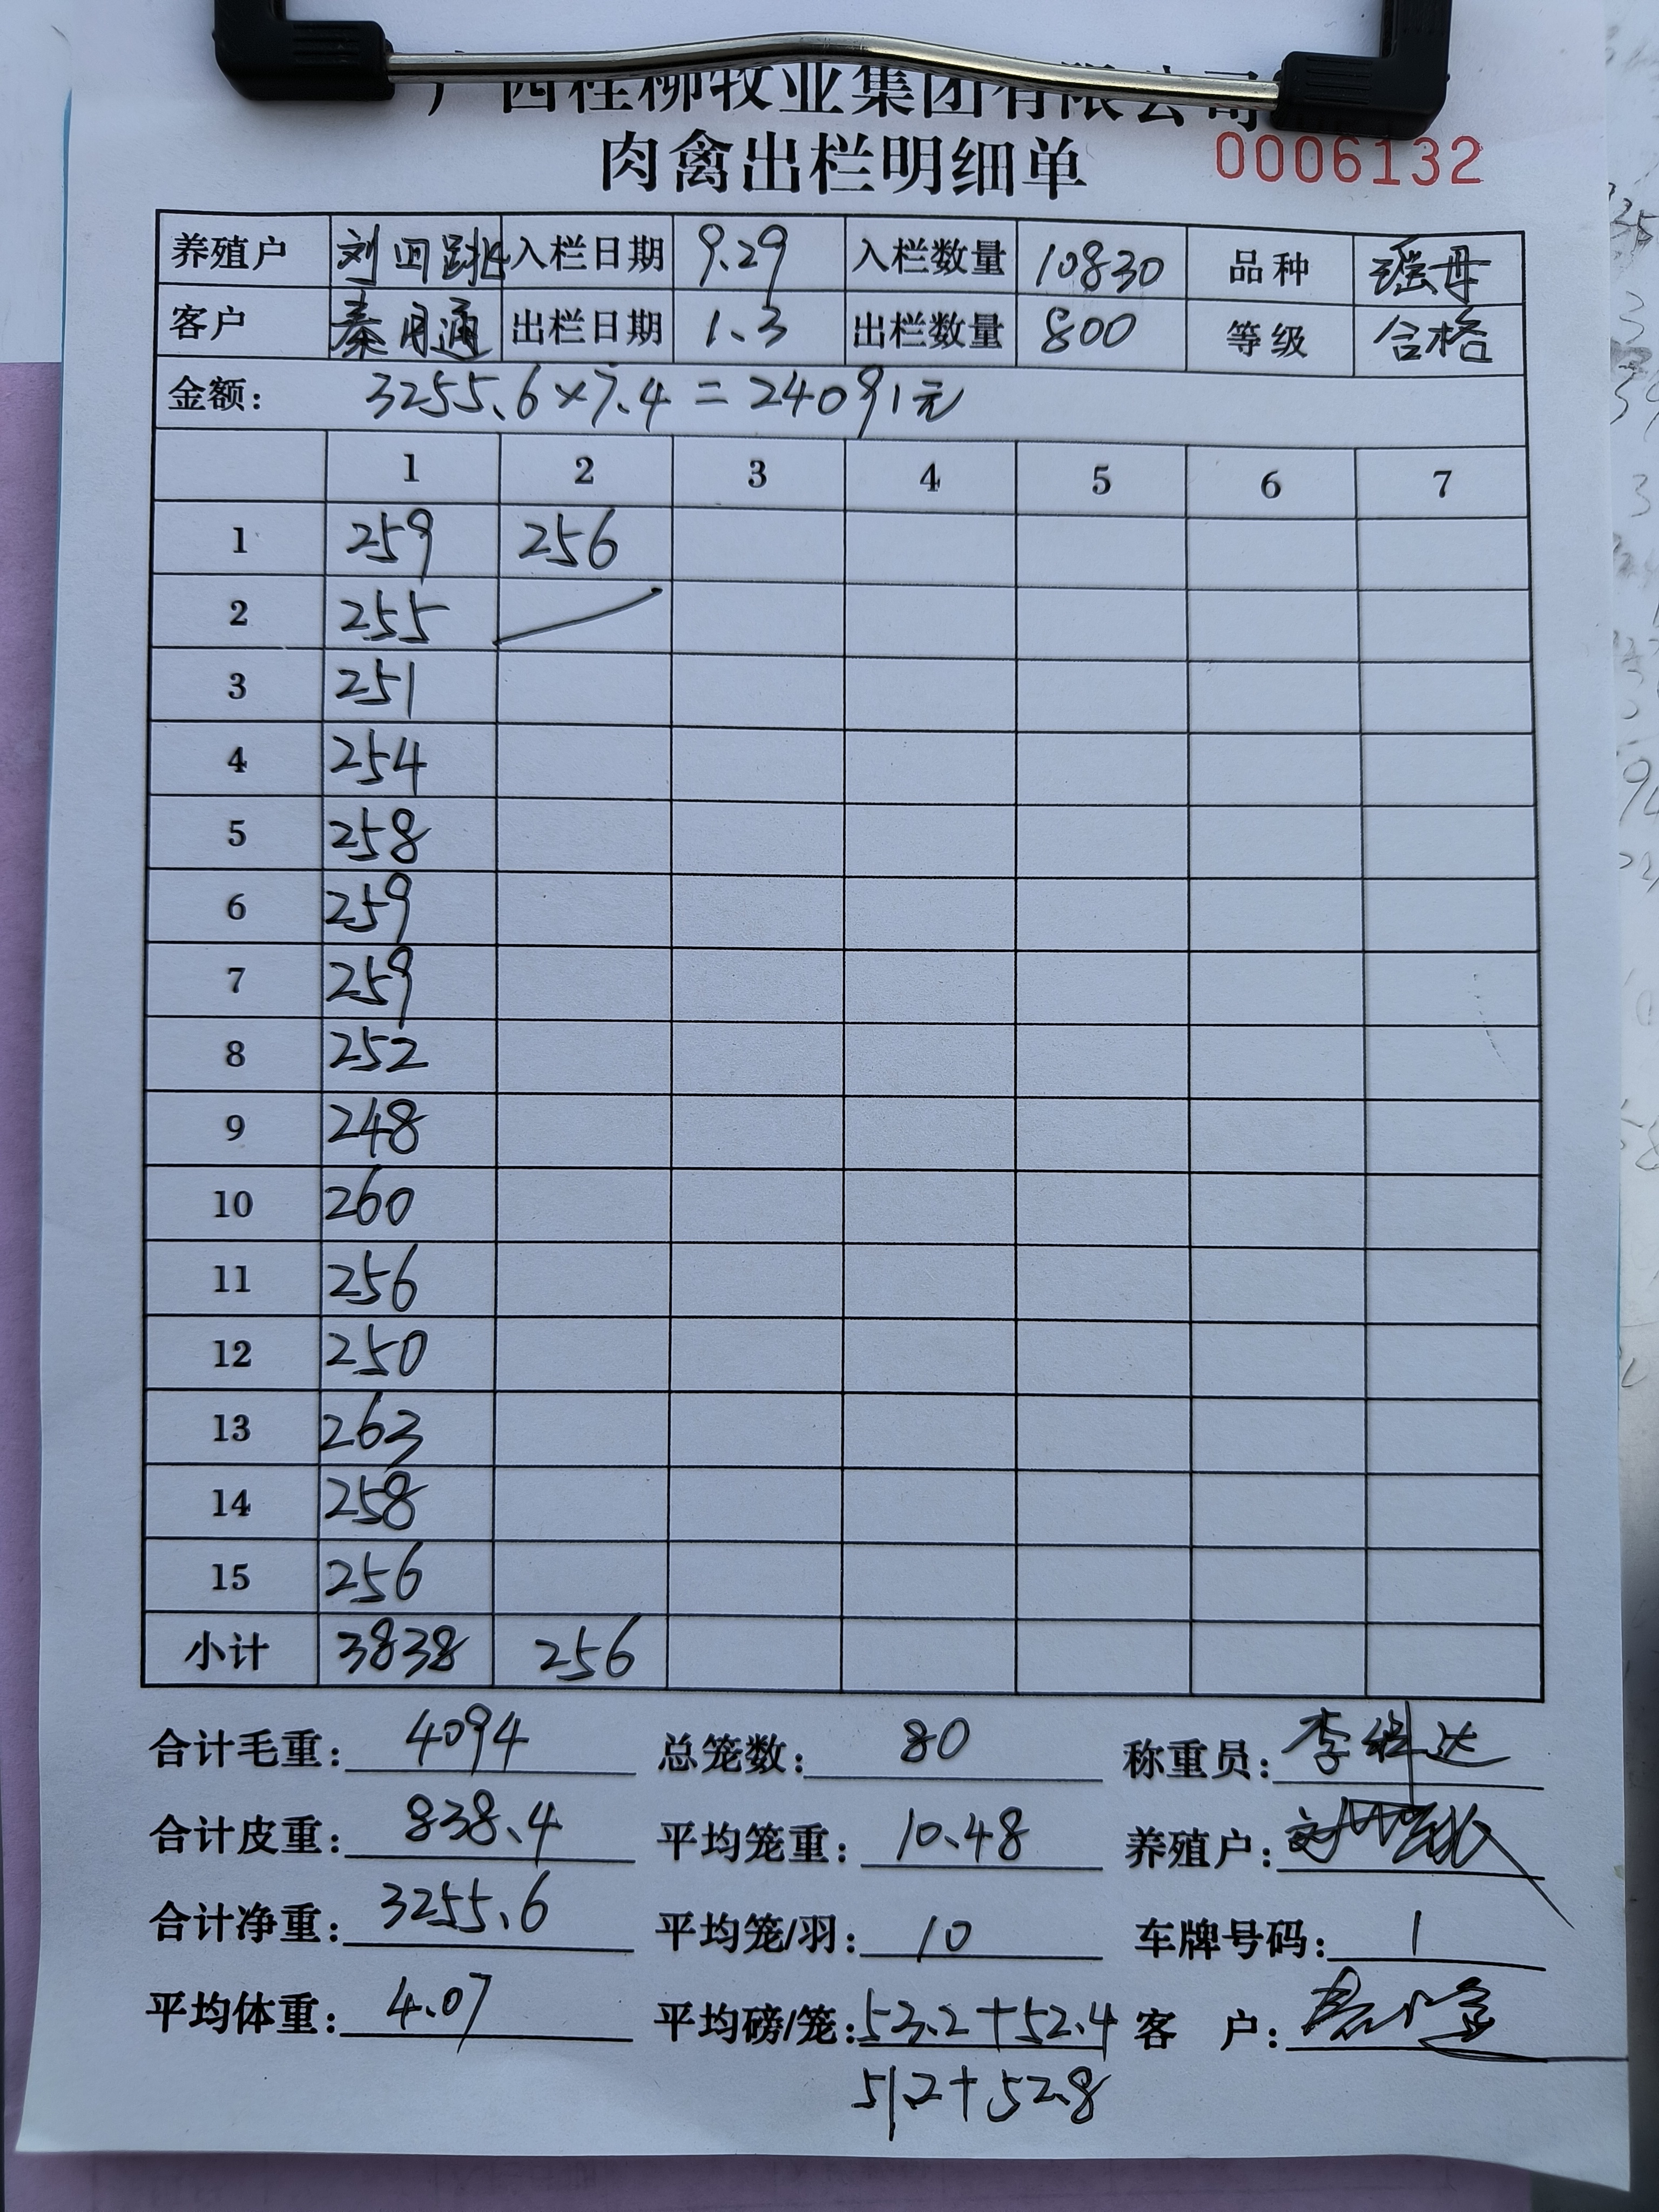 广西桂柳牧业集团有限公司
肉禽出栏明细单 0006132
养殖户 刘四 入栏日期 9.29 入栏数量 10830 品种 瑶母
客户 秦月通 出栏日期 1.3 出栏数量 800 等级 合格
金额: 3255.6×7.4=24091元
1 2 3 4 5 6 7
1 259 256
2 255
3 251
4 254
5 258
6 259
7 259
8 252
9 248
10 260
11 256
12 250
13 263
14 258
15 256
小计 3838 256
合计毛重: 4094 总笼数: 80 称重员: 李 达
合计皮重: 838.4 平均笼重: 10.48 养殖户:
合计净重: 3255.6 平均笼/羽: 10 车牌号码: 1
平均体重: 4.07 平均磅/笼: 53.2+52.4 客 户:
51.2+52.8